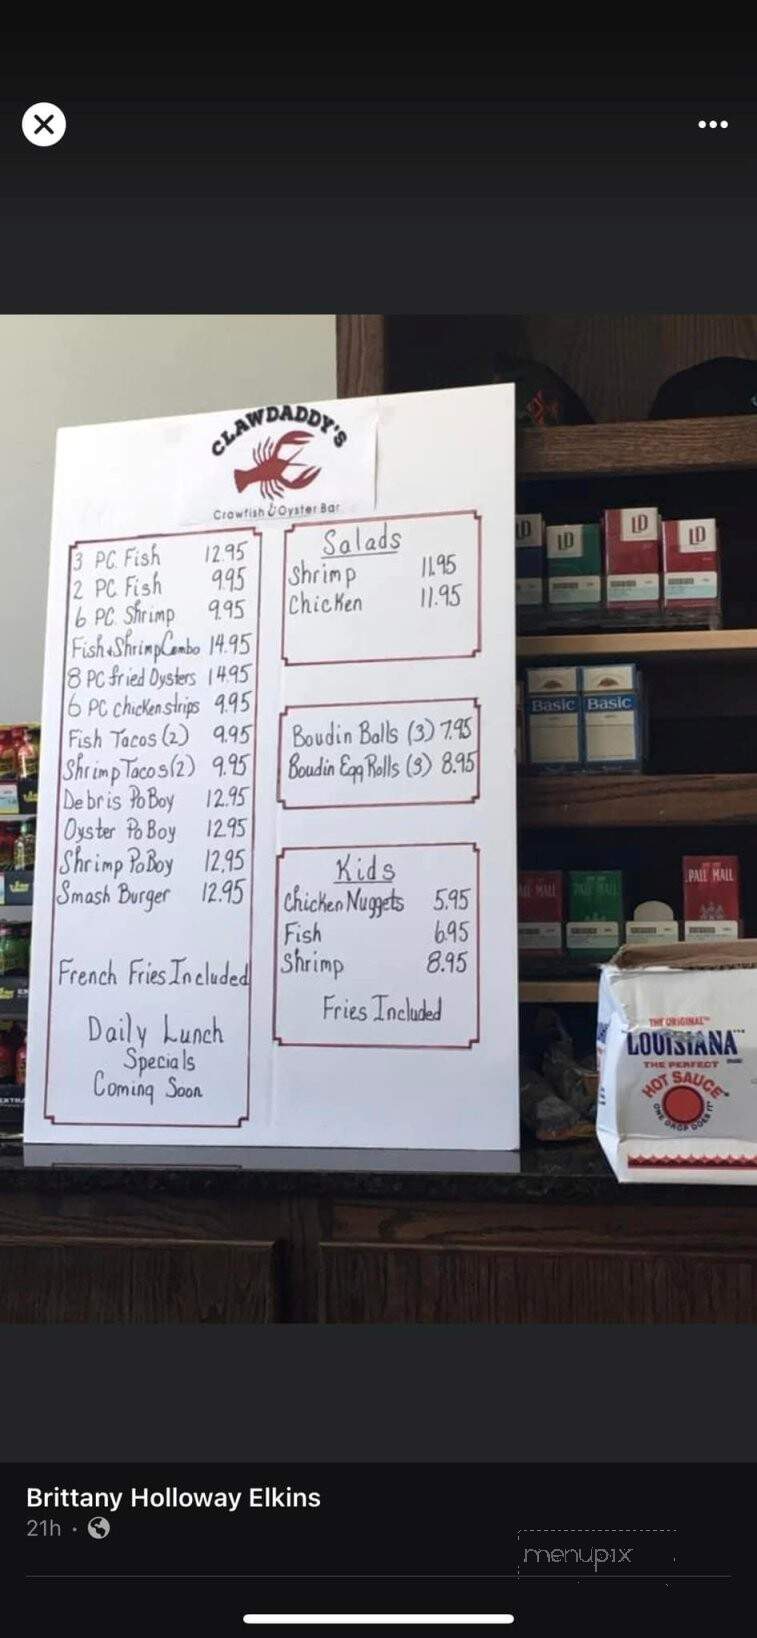 CLAWDADDY'S
Crawfish & Oyster Bar
3 PC. Fish 12.95
2 PC. Fish 9.95
6 PC. Shrimp 9.95
Fish & Shrimp Combo 14.95
8 PC fried Oysters 14.95
6 PC chicken strips 9.95
Fish Tacos (2) 9.95
Shrimp Tacos (2) 9.95
Debris Po Boy 12.95
Oyster Po Boy 12.95
Shrimp Po Boy 12.95
Smash Burger 12.95
French Fries Included
Daily Lunch
Specials
Coming Soon
Salads
Shrimp 11.95
Chicken 11.95
Boudin Balls (3) 7.95
Boudin Egg Rolls (3) 8.95
Kids
Chicken Nuggets 5.95
Fish 6.95
Shrimp 8.95
Fries Included
LD
LD
LD
LD
Basic Basic
PALL MALL
PALL MALL
PALL MALL
THE ORIGINAL
LOUISIANA
BRAND
THE PERFECT
HOT SAUCE
ONE DROP DOES IT
Brittany Holloway Elkins
21h ·
menupix